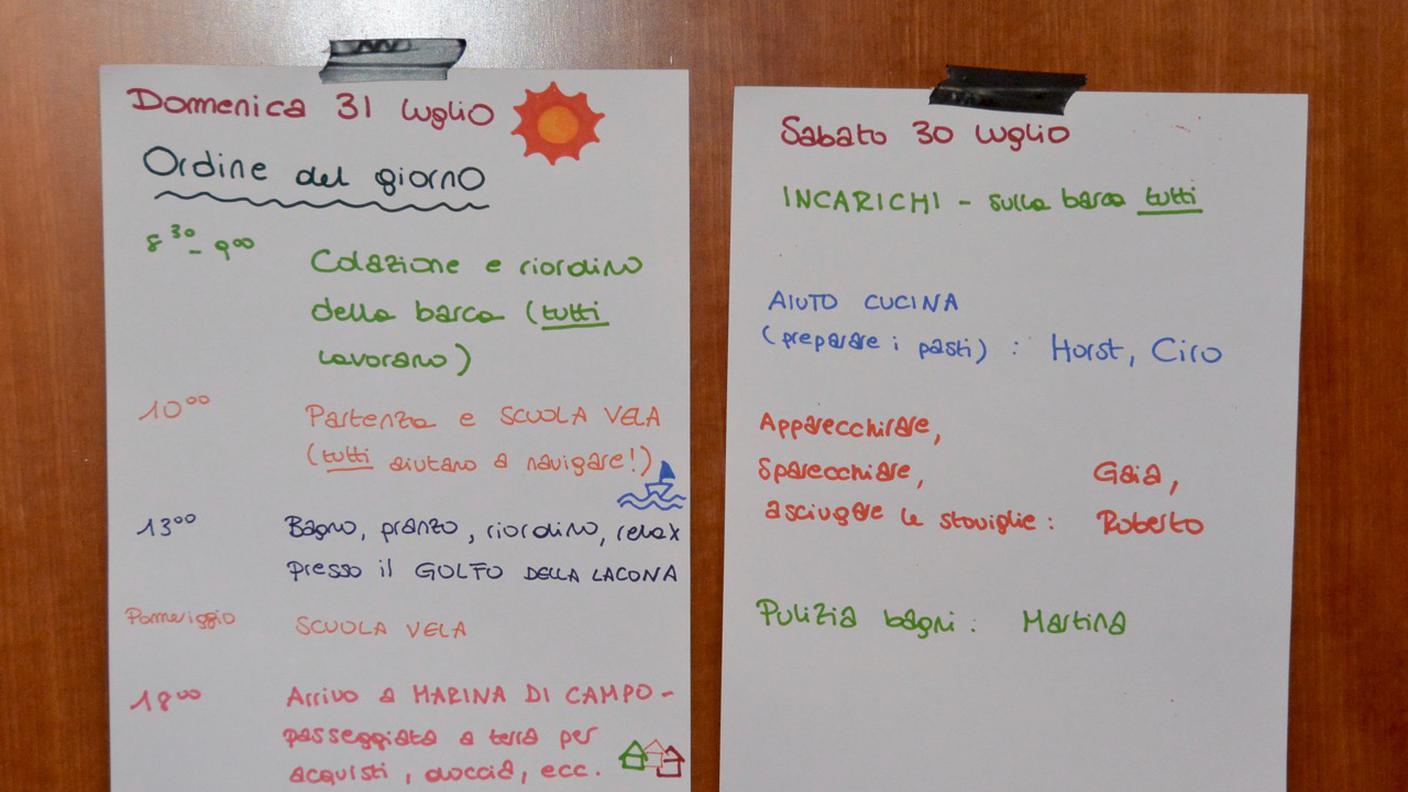 Domenica 31 luglio
Ordine del giorno
8³⁰ - 9⁰⁰ Colazione e riordino
della barca (tutti
lavorano)
10⁰⁰ Partenza e SCUOLA VELA
(tutti aiutano a navigare!)
13⁰⁰ Bagno, pranzo, riordino, relax
presso il GOLFO DELLA LACONA
Pomeriggio SCUOLA VELA
18⁰⁰ Arrivo a MARINA DI CAMPO -
passeggiata a terra per
acquisti, doccia, ecc.
Sabato 30 luglio
INCARICHI - sulla barca tutti
AIUTO CUCINA
(preparare i pasti) : Horst, Ciro
Apparecchirare,
sparecchiare, Gaia,
asciugare le stoviglie : Roberto
Pulizia bagni : Martina